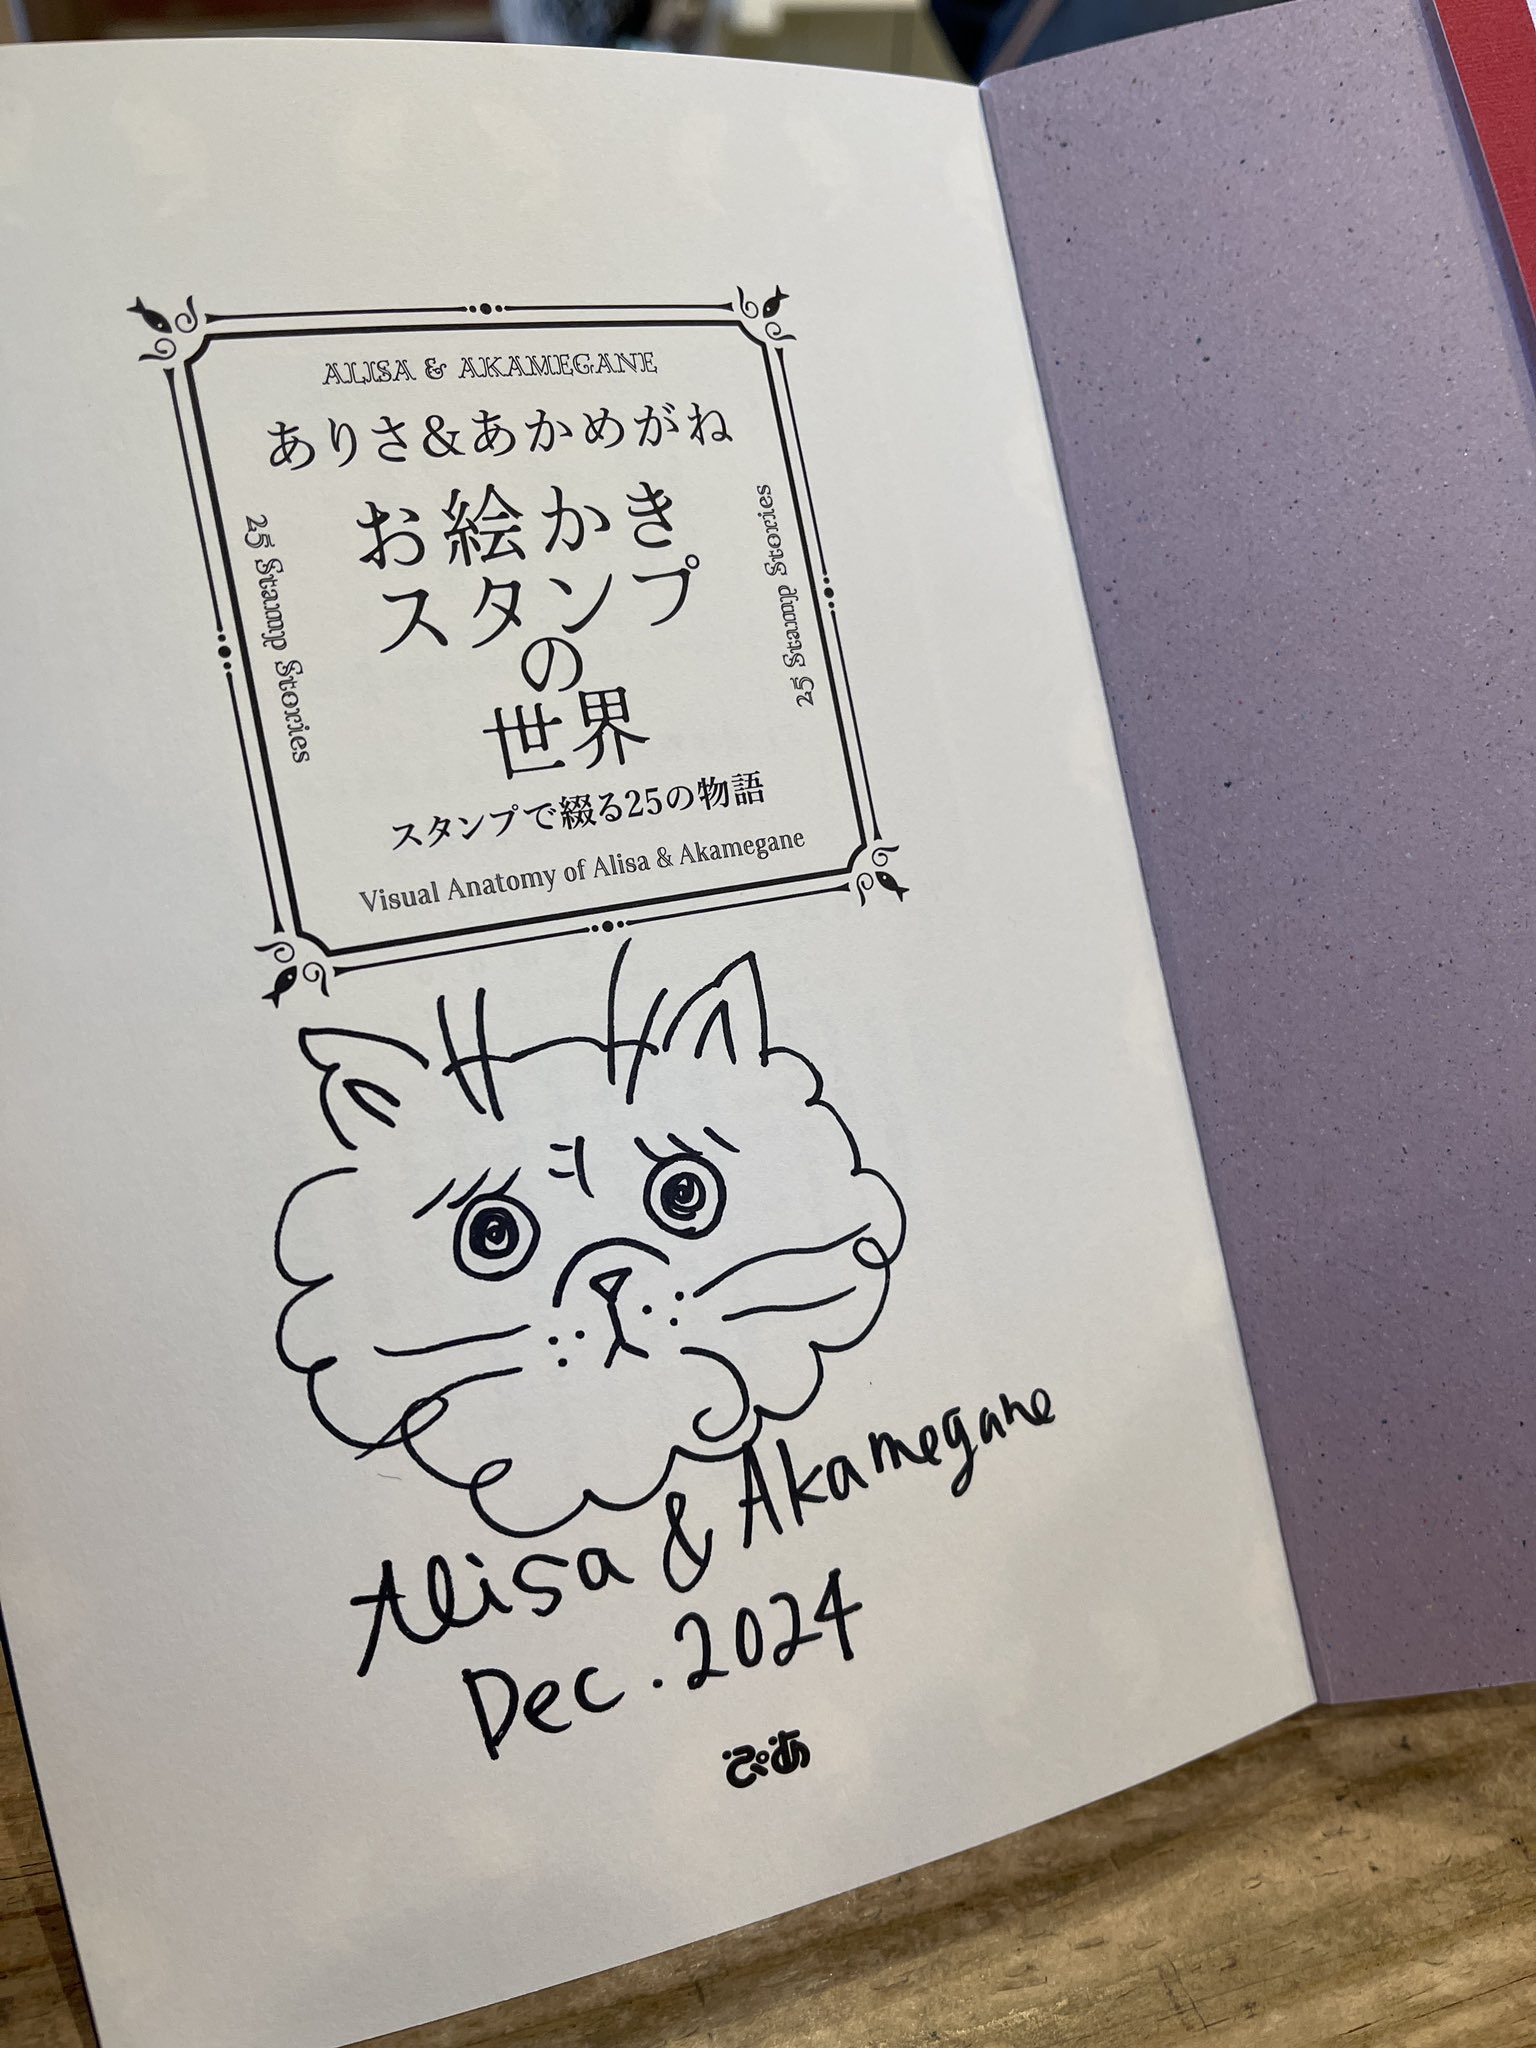 ALISA & AKAMEGANE
ありさ&あかめがね
お絵かき
スタンプ
の
世界
スタンプで綴る25の物語
Visual Anatomy of Alisa & Akamegane
25 Stamp Stories
25 Stamp Stories
Alisa & Akamegane
Dec. 2024
ぴあ